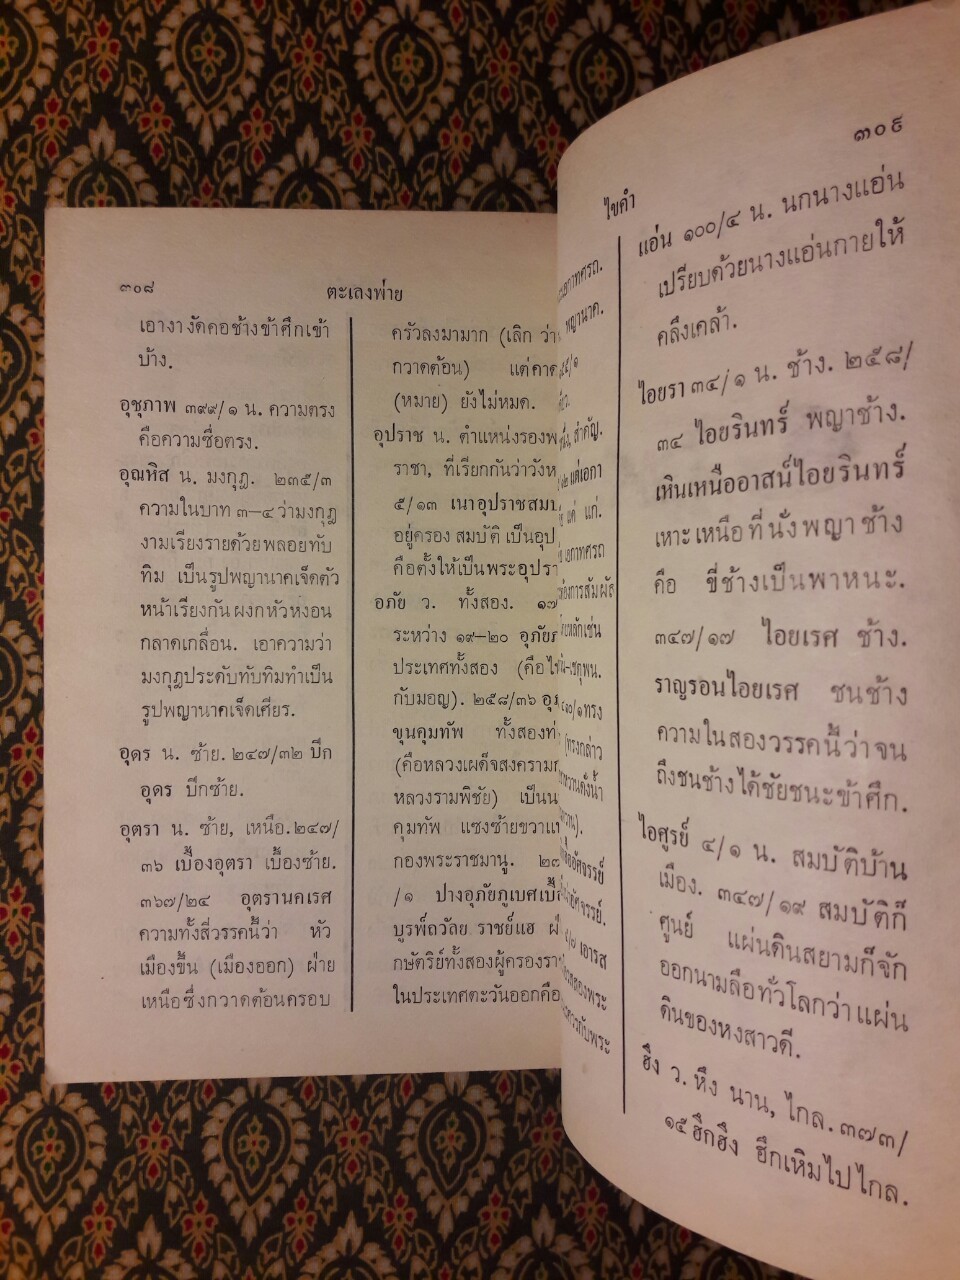 ๓๐๘
ตะเลงพ่าย
เอางางัดคอช้างข้าศึกเข้า
บ้าง.
อุชุภาพ ๓๙๙/๑ น. ความตรง
คือความซื่อตรง.
อุณหิส น. มงกุฎ. ๒๓๕/๓
ความในบาท ๓–๔ ว่ามงกุฎ
งามเรียงรายด้วยพลอยทับ
ทิม เป็นรูปพญานาคเจ็ดตัว
หน้าเรียงกัน ผงกหัวหงอน
กลาดเกลื่อน. เอาความว่า
มงกุฎประดับทับทิมทำเป็น
รูปพญานาคเจ็ดเศียร.
อุดร น. ซ้าย. ๒๔๗/๓๒ ปีก
อุดร ปีกซ้าย.
อุตรา น. ซ้าย, เหนือ. ๒๔๗/
๓๖ เบื้องอุตรา เบื้องซ้าย.
๓๖๗/๒๔ อุตรานคเรศ
ความทั้งสี่วรรคนี้ว่า หัว
เมืองขึ้น (เมืองออก) ฝ่าย
เหนือซึ่งกวาดต้อนครอบ
ครัวลงมามาก (เลิก ว่า
กวาดต้อน) แต่คาด
(หมาย) ยังไม่หมด.
อุปราช น. ตำแหน่งรองพ
ราชา, ที่เรียกกันว่าวังห
๕/๑๓ เนาอุปราชสมบ
อยู่ครอง สมบัติ เป็นอุป
คือตั้งให้เป็นพระอุปรา
อภัย ว. ทั้งสอง. ๑๗
ระหว่าง ๑๙–๒๐ อุภัย
ประเทศทั้งสอง (คือไท
กับมอญ). ๒๕๘/๓๖ อุภ
ขุนคุมทัพ ทั้งสองท่
(คือหลวงเผด็จสงคราม
หลวงรามพิชัย) เป็นน
คุมทัพ แซงซ้ายขวาแ
กองพระราชมานู. ๒๘
/๑ ปางอุภัยภูเบศเบื้
บูรพ์ถวัลย ราชย์แฮ
กษัตริย์ทั้งสองผู้ครองรา
ในประเทศตะวันออกคือ
๓๐๙
ไขคำ
แอ่น ๑๐๐/๔ น. นกนางแอ่น
เปรียบด้วยนางแอ่นกายให้
คลึงเคล้า.
ไอยรา ๓๔/๑ น. ช้าง. ๒๕๘/
๓๔ ไอยรินทร์ พญาช้าง.
เหินเหนืออาสน์ไอยรินทร์
เหาะเหนือที่นั่งพญาช้าง
คือ ขี่ช้างเป็นพาหนะ.
๓๔๗/๑๗ ไอยเรศ ช้าง.
ราญรอนไอยเรศ ชนช้าง
ความในสองวรรคนี้ว่าจน
ถึงชนช้างได้ชัยชนะข้าศึก.
ไอศูรย์ ๔/๑ น. สมบัติบ้าน
เมือง. ๓๔๗/๑๙ สมบัติก็
ศูนย์ แผ่นดินสยามก็จัก
ออกนามลือทั่วโลกว่าแผ่น
ดินของหงสาวดี.
ฮึง ว. หึง นาน, ไกล. ๓๗๓/
๑๕ ฮึกฮึง ฮึกเหิมไปไกล.